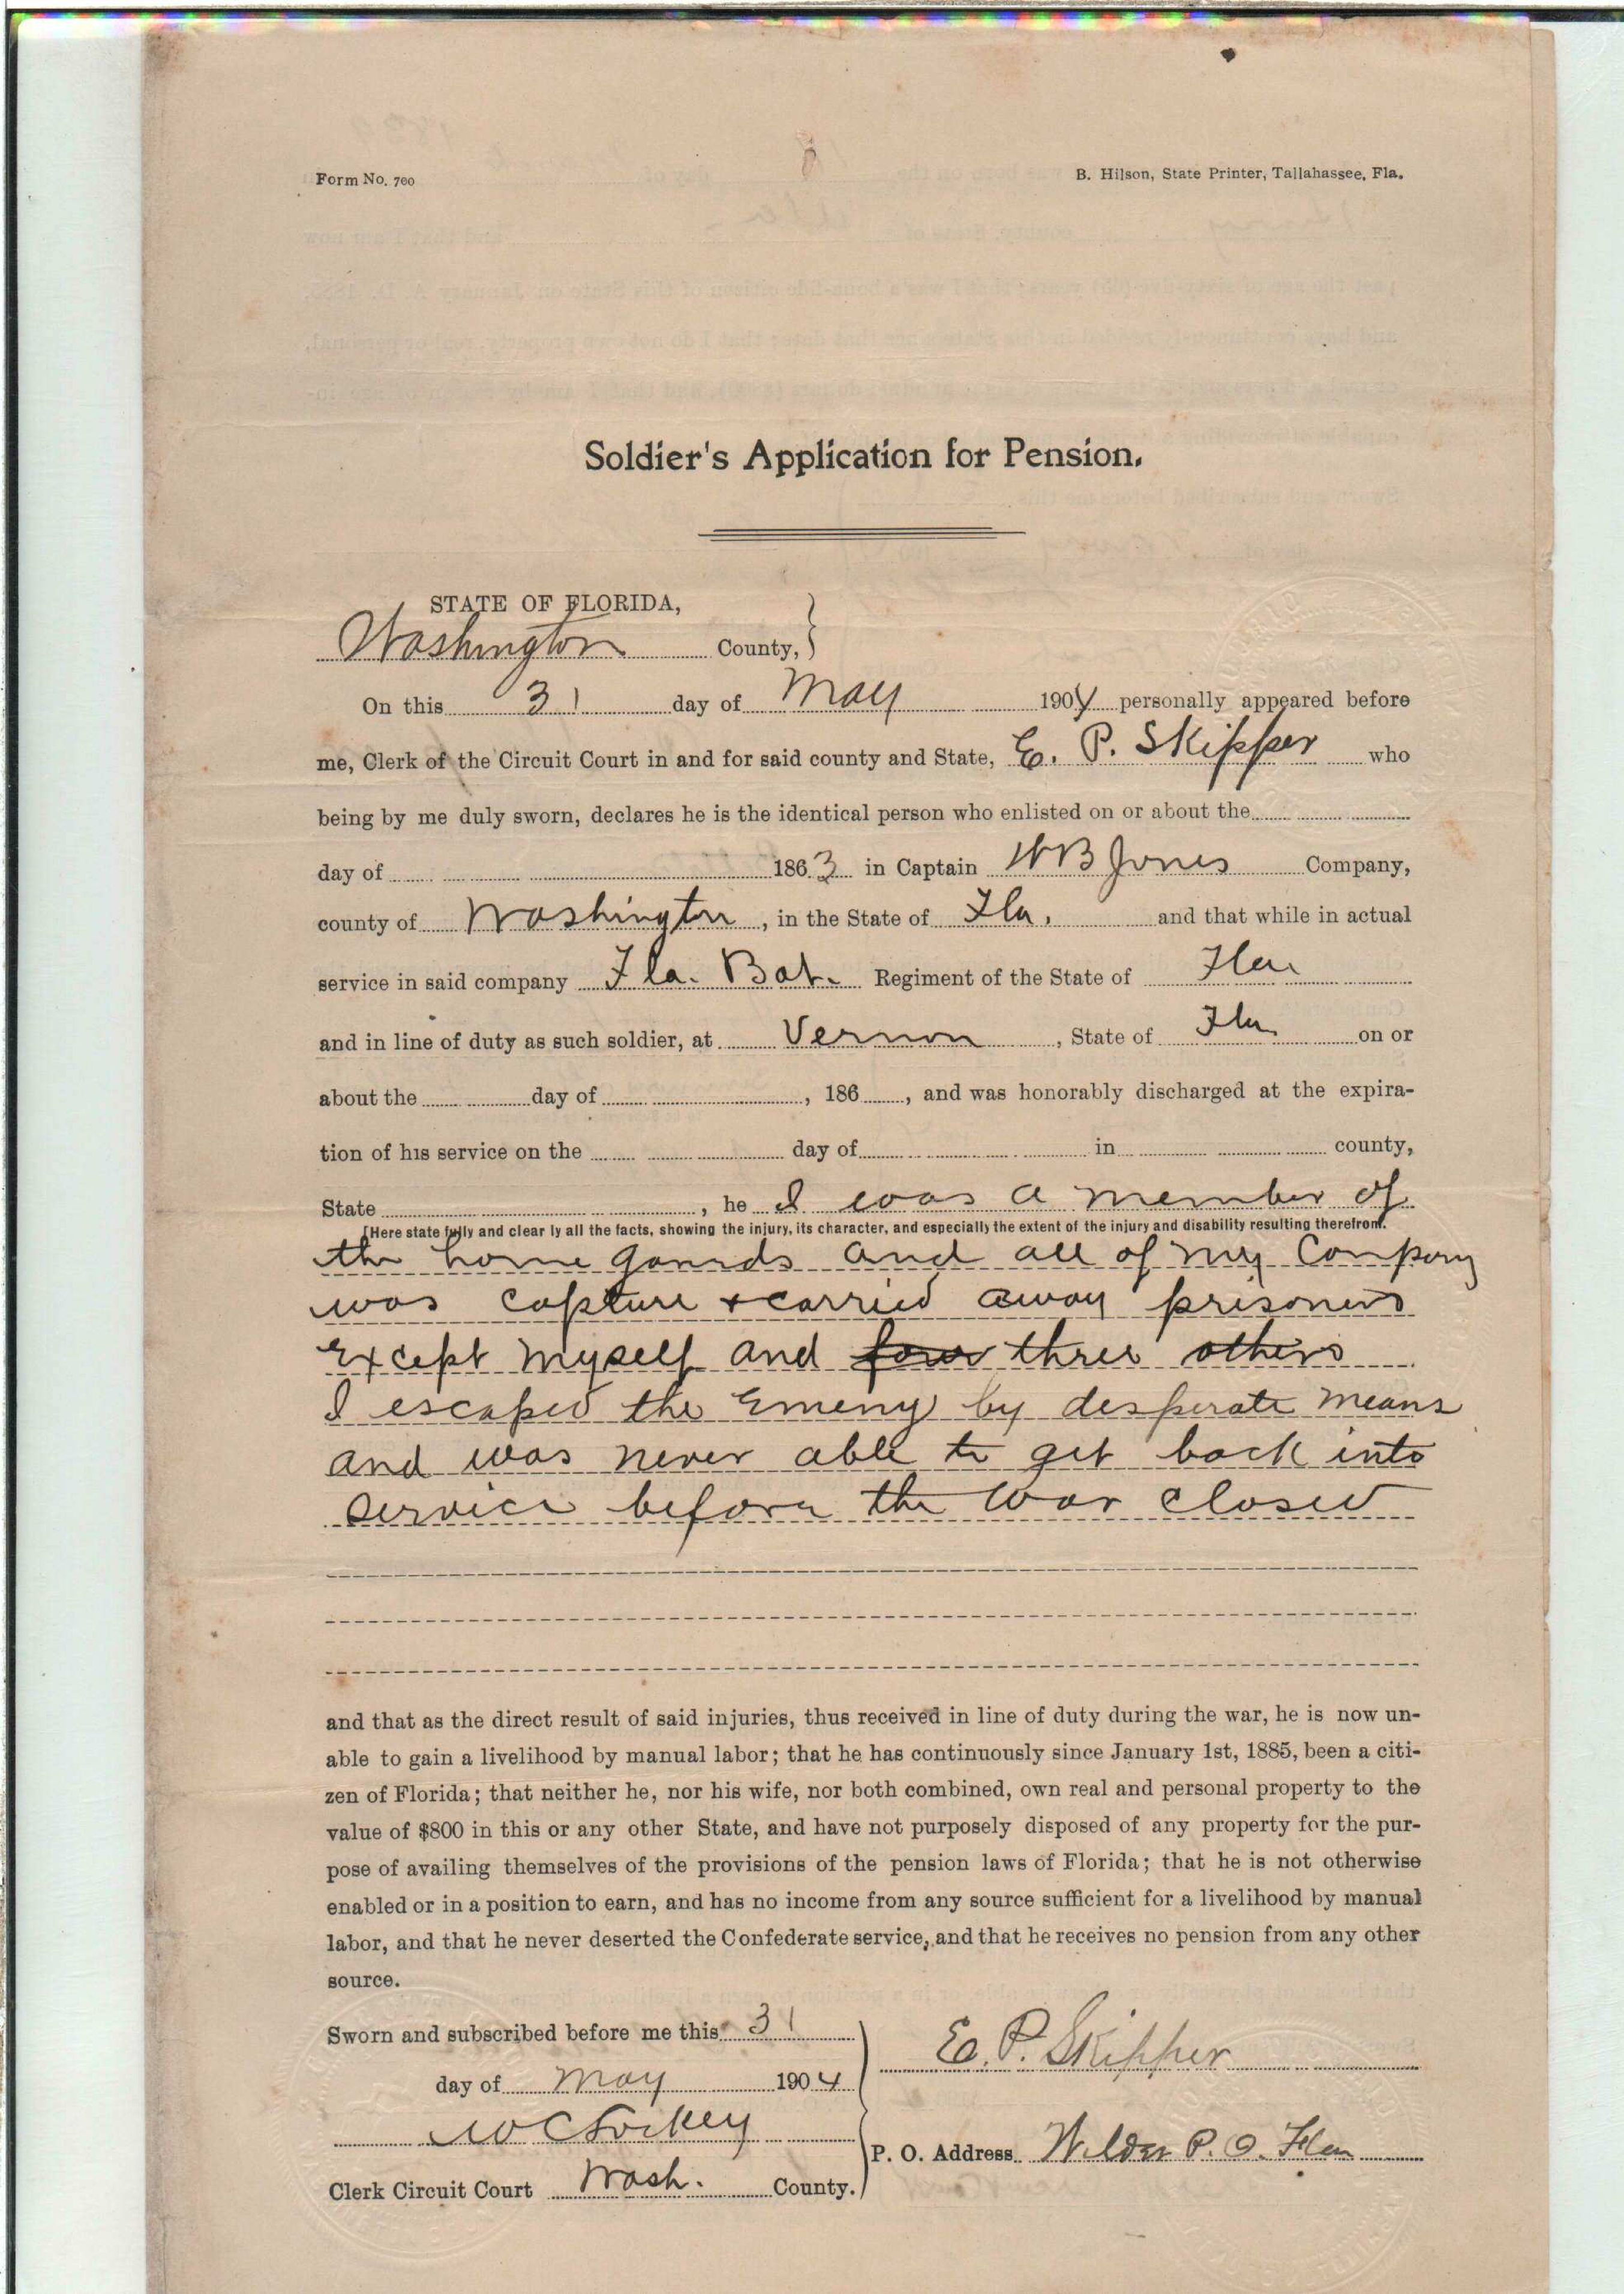 Form No. 700
B. Hilson, State Printer, Tallahassee, Fla.
Soldier's Application for Pension.
STATE OF FLORIDA,
Washington County,
On this 31 day of May 1904 personally appeared before
me, Clerk of the Circuit Court in and for said county and State, E. P. Skipper who
being by me duly sworn, declares he is the identical person who enlisted on or about the
day of 1863 in Captain W B Jones Company,
county of Washington, in the State of Fla. and that while in actual
service in said company Fla. Bat. Regiment of the State of Fla
and in line of duty as such soldier, at Vernon, State of Fla on or
about the day of , 186 , and was honorably discharged at the expira-
tion of his service on the day of in county,
State , he I was a member of
[Here state fully and clear ly all the facts, showing the injury, its character, and especially the extent of the injury and disability resulting therefrom.
the home gaurds and all of my Company
was capture & carried away prisoners
Except myself and four three others
I escaped the Emeny by desperate means
and was never able to get back into
service before the war closed
and that as the direct result of said injuries, thus received in line of duty during the war, he is now un-
able to gain a livelihood by manual labor; that he has continuously since January 1st, 1885, been a citi-
zen of Florida; that neither he, nor his wife, nor both combined, own real and personal property to the
value of $800 in this or any other State, and have not purposely disposed of any property for the pur-
pose of availing themselves of the provisions of the pension laws of Florida; that he is not otherwise
enabled or in a position to earn, and has no income from any source sufficient for a livelihood by manual
labor, and that he never deserted the Confederate service, and that he receives no pension from any other
source.
Sworn and subscribed before me this 31
day of May 1904
W C Lockey
Clerk Circuit Court Wash. County.
E. P. Skipper
P. O. Address Wilder P. O. Fla